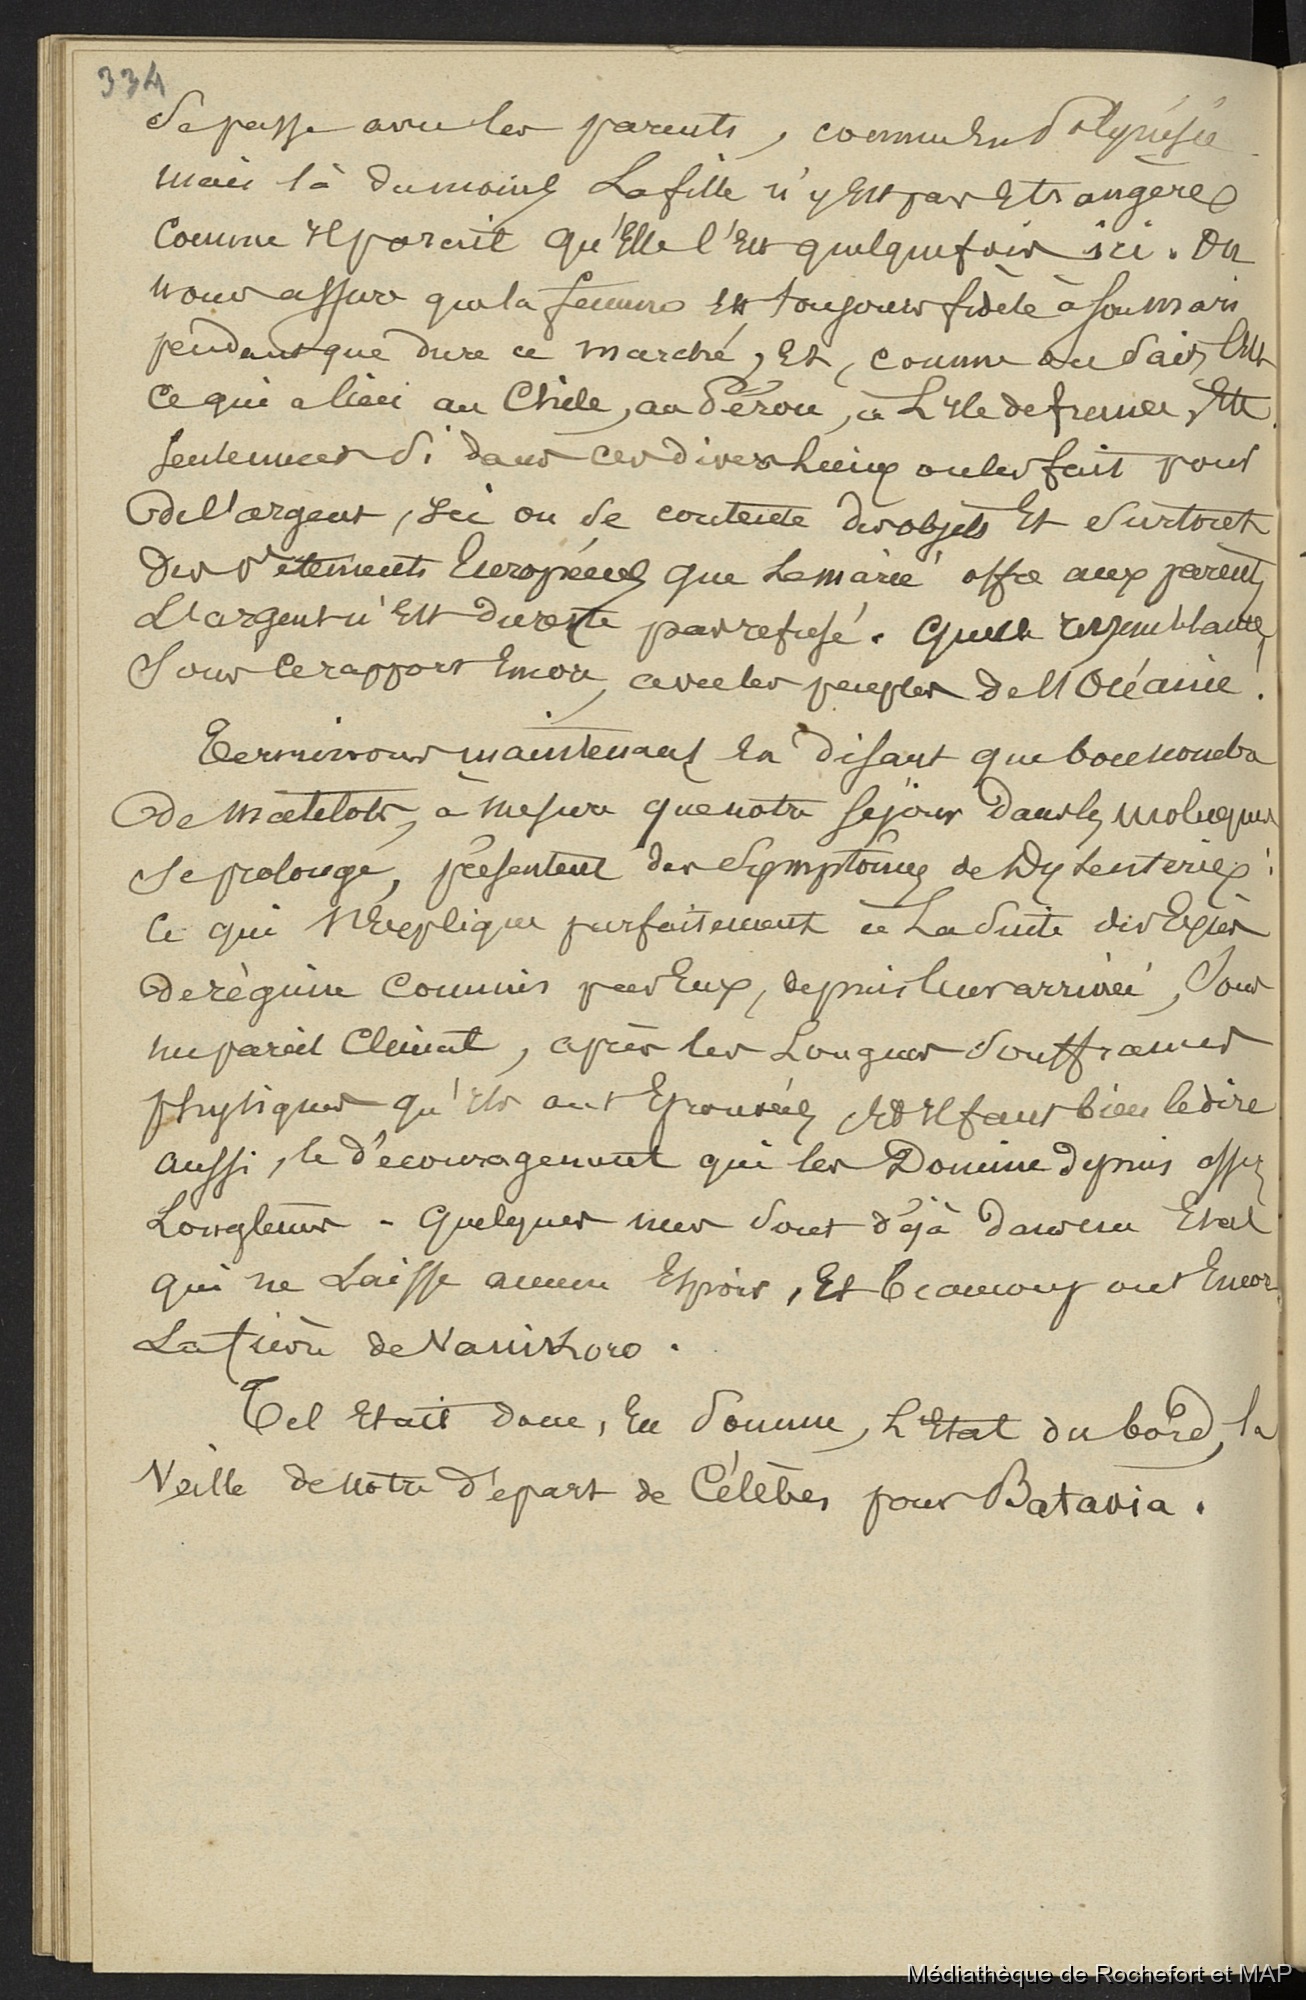 334
se passe avec les parents, comme en Polynésie
mais là du moins la fille n'y est pas étrangère
comme il parait qu'Elle l'est quelquefois ici. On
nous assure que la femme est toujours fidèle à son mari
pendant que dure ce marché, Et, comme on sait, c'est
ce qui a lieu au Chili, au Pérou, à L'Ile de france, Ett.
seulement si dans ces divers Lieux on les fait pour
de l'argent, ici on se contente des objets Et surtout
des vêtements Européens que le marié offre aux parents
L'argent n'Est du reste pas refusé. Quelle ressemblance,
sous ce rapport Encore, avec les peuples de l'Océanie!
Terminons maintenant En disant que bon nombre
de matelots, à mesure que notre séjour dans les moluques
se prolonge, présentent des symptômes de Dysenteries:
Ce qui s'Explique parfaitement à La suite des Excès
de régime Commis par Eux, depuis leur arrivée, sous
un pareil Climat, après les Longues souffrances
physiques qu'ils ont Eprouvées, Et Il faut bien le dire
aussi, le découragement qui les Domine depuis assez
Longtems. Quelques uns sont déjà dans un Etat
qui ne Laisse aucun Espoir, Et beaucoup ont Encor
La fièvre de Vanikoro.
Tel Etait donc, En somme, L'Etat du bord, la
Veille de notre départ de Célèbes pour Batavia.
Médiathèque de Rochefort et MAP